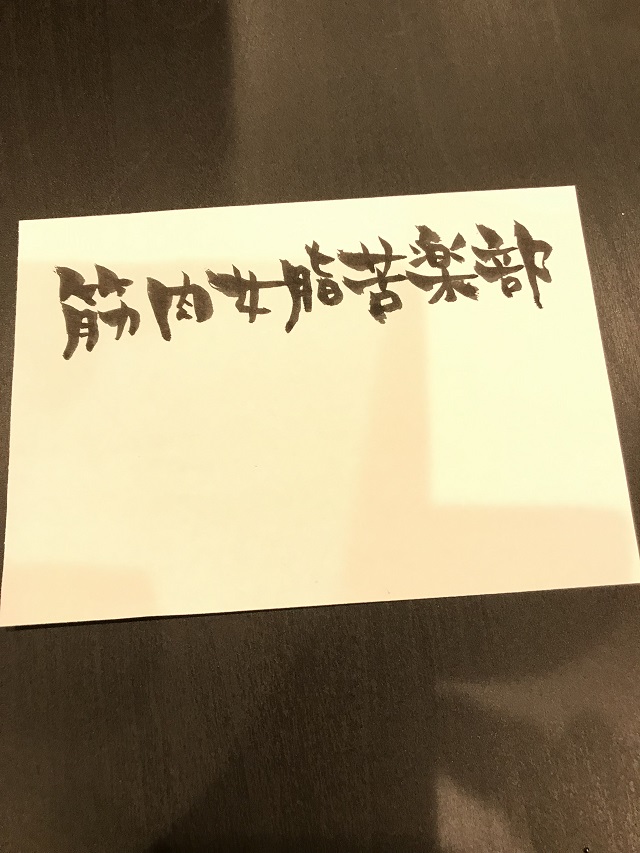 筋肉女脂苦楽部